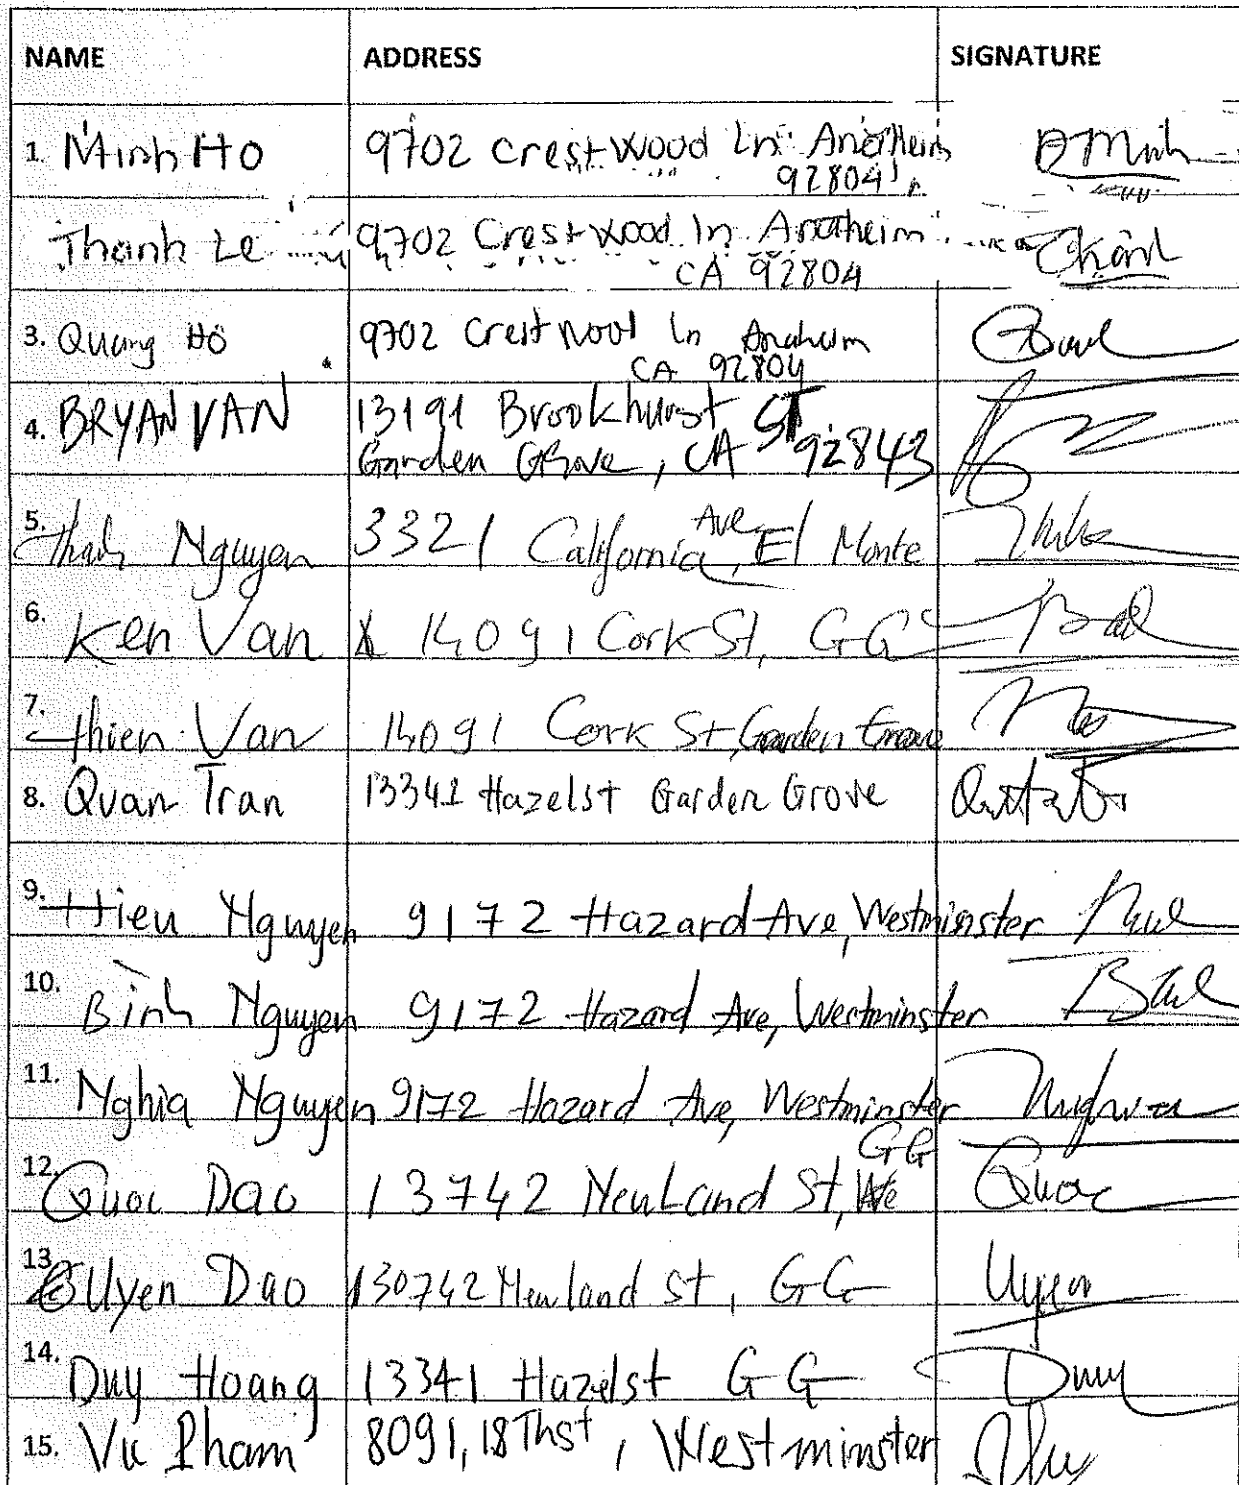 NAME ADDRESS SIGNATURE
1. Minh Ho 9702 Crestwood Ln Anaheim
92804
Thanh Le 9702 Crestwood ln Anaheim
CA 92804
3. Quang Ho 9702 Crestwood ln Anaheim
CA 92804
4. BRYAN VAN 13191 Brookhurst ST
Garden Grove, CA 92843
5. Thanh Nguyen 3321 California Ave, El Monte
6. Ken Van 14091 Cork St, GG
7. Thien Van 14091 Cork St, Garden Grove
8. Quan Tran 13341 Hazelst Garden Grove
9. Hieu Nguyen 9172 Hazard Ave, Westminster
10. Bình Nguyen 9172 Hazard Ave, Westminster
11. Nghia Nguyen 9172 Hazard Ave, Westminster
GG
12. Quoc Dao 13742 NewLand St, Quoc
13. Uyen Dao 130742 Newland St, GG Uyen
14. Duy Hoang 13341 Hazelst GG Duy
15. Vu Pham 8091, 18Thst, Westminster